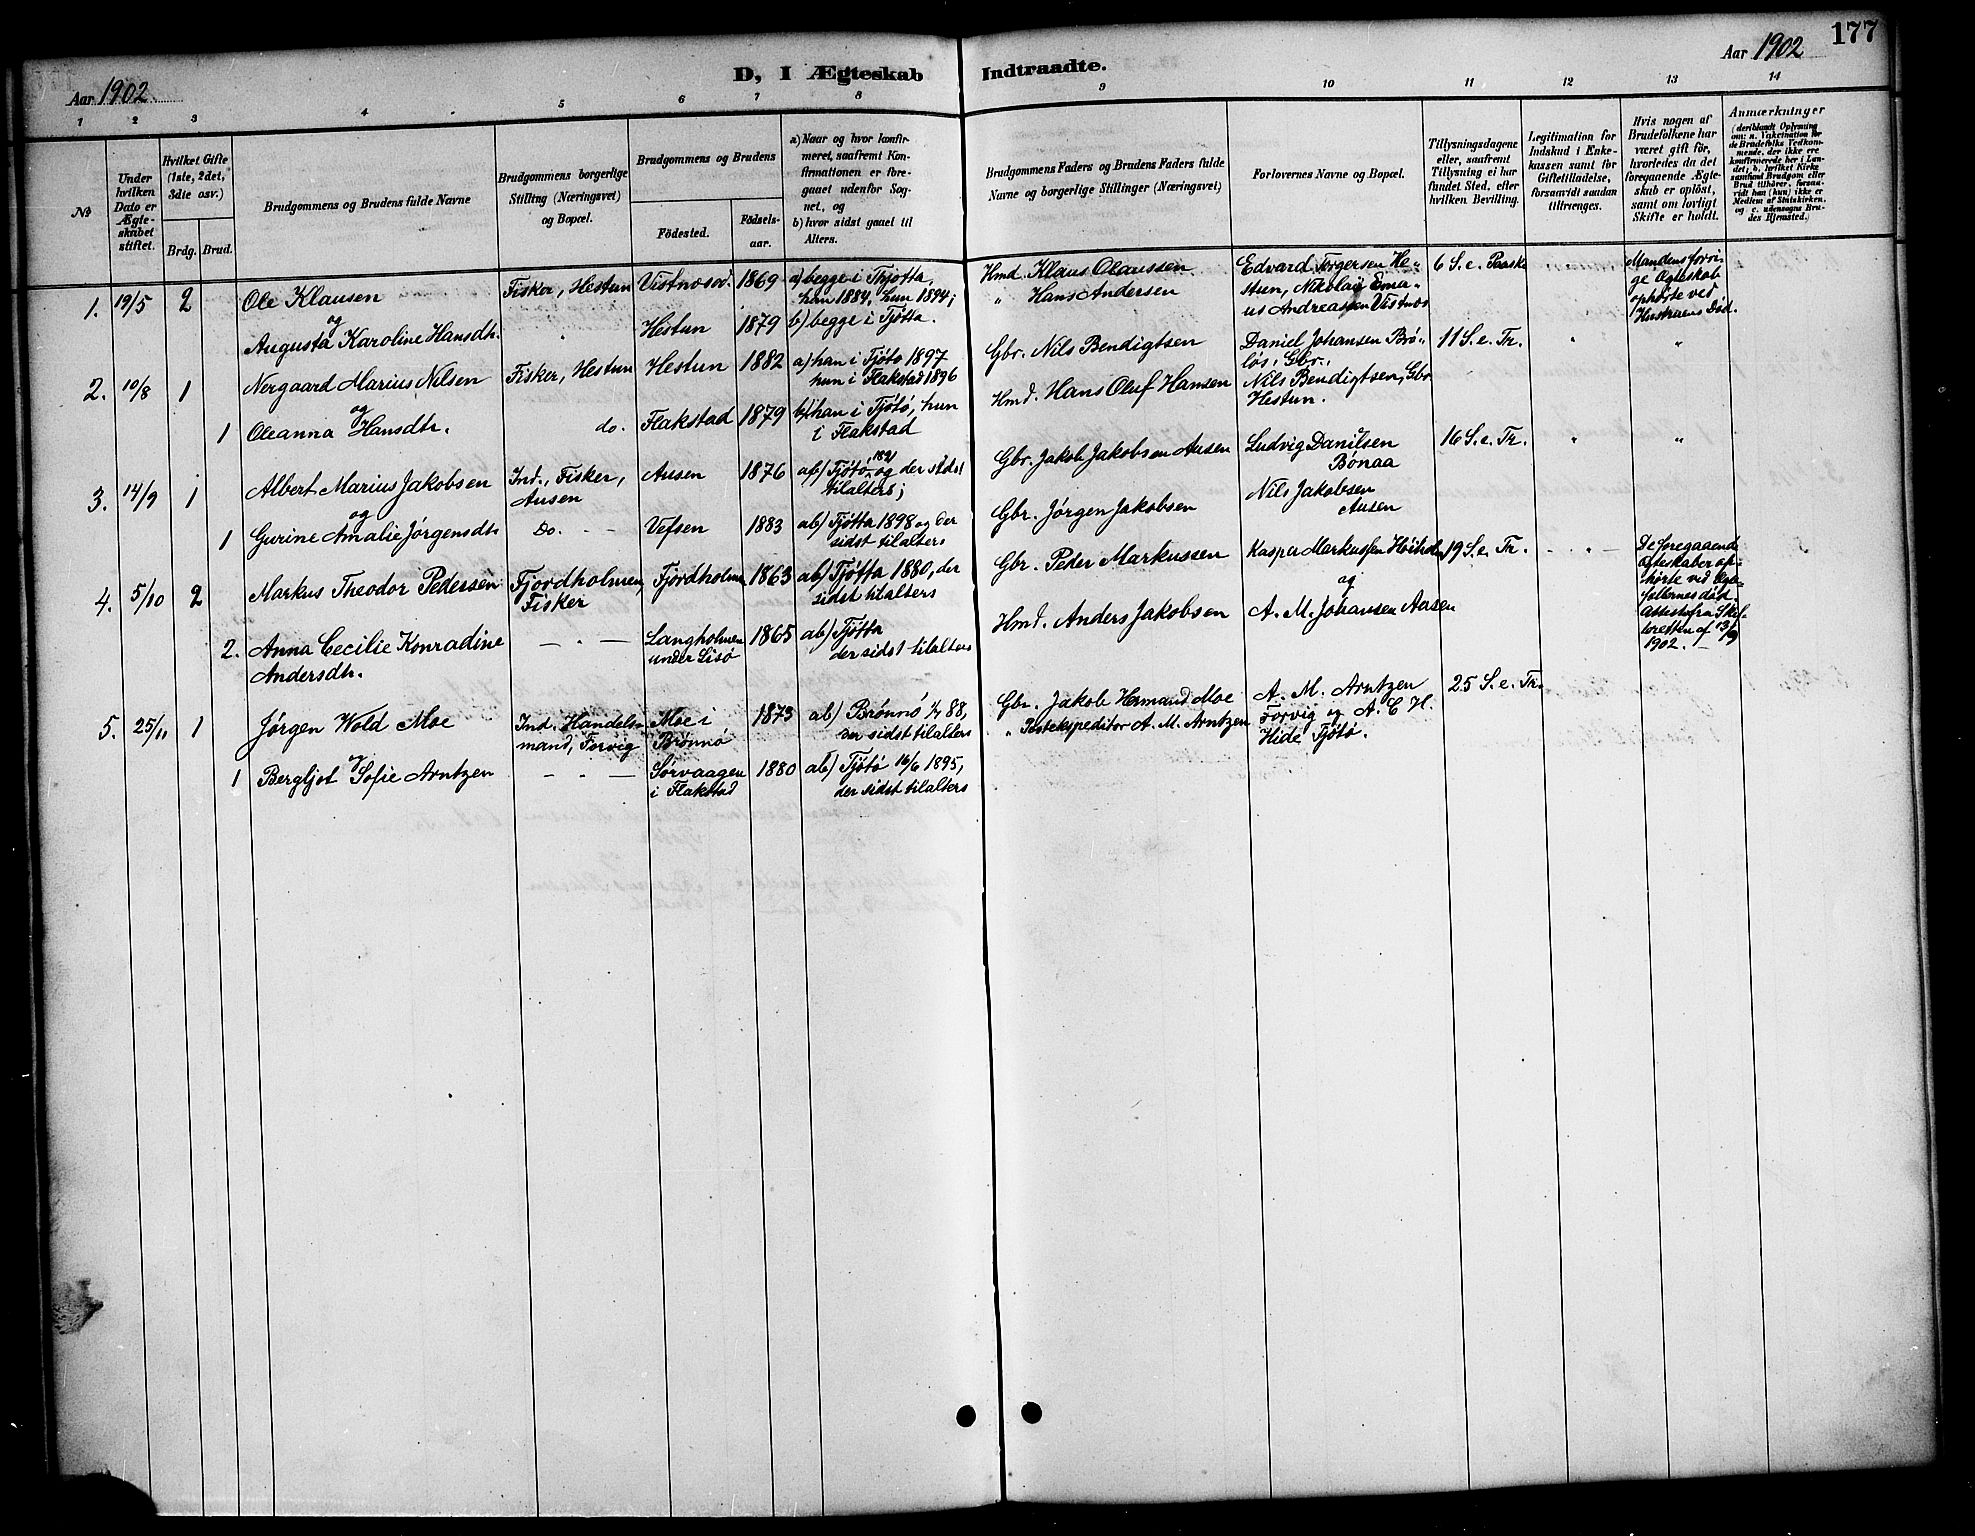 177
Aar 1902
D, I Ægteskab Indtraadte.
Aar 1902
1 2 3 4 5 6 7 8 9 10 11 12 13 14
No
Under hvilken Dato er Ægteskabet stiftet.
Hvilket Gifte (1ste, 2det, 3dte osv.)
Brdg. Brud.
Brudgommens og Brudens fulde Navne
Brudgommens borgerlige Stilling (Næringsvei) og Bopæl.
Brudgommens og Brudens
Födested.
Födselsaar.
a) Naar og hvor konfirmeret, saafremt Konfirmationen er foregaaet udenfor Sognet, og
b) hvor sidst gaaet til Alters.
Brudgommens Faders og Brudens Faders fulde Navne og borgerlige Stillinger (Næringsvei)
Forlovernes Navne og Bopæl.
Tillysningsdagene eller, saafremt Tillysning ei har fundet Sted, efter hvilken Bevilling.
Legitimation for Indskud i Enkekassen samt for Giftetilladelse, forsaavidt saadan tiltrænges.
Hvis nogen af Brudefolkene har været gift før, hvorledes da det foregaaende Ægteskab er oplöst, samt om lovligt Skifte er holdt.
Anmærkninger
(deriblandt Oplysning om: a. Vakcination for de Brudefolks Vedkommende, der ikke ere konfirmerede her i Landet; b. hvilket Kirkesamfund Brudgom eller Brud tilhörer, forsaavidt han (hun) ikke er Medlem af Statskirken, og c. udensogns Brudes Hjemsted.)
1. 19/5 2 Ole Klausen Fisker, Hestun Vistnesod. 1869 a) begge i Thjøtta, han 1884, hun 1894;
og
Augusta Karoline Hansdtr. " Hestun 1879 b) begge i Tjøtta.
Hmd. Klaus Olaussen
" Hans Andersen
Edvard Torgersen Hestun, Nikolai Emaus Andreassen Vistnes
6 S. e. Paaske
Mandens forrige Ægteskab ophørte ved Hustruens Død.
2. 10/8 1 Nergaard Marius Nilsen Fisker, Hestun Hestun 1882 a) han i Tjøtø 1897 hun i Flakstad 1896
og
1 Oleanna Hansdtr. do. Flakstad 1879 b) han i Tjøtø, hun i Flakstad
Gbr. Nils Bendigtsen
Hmd. Hans Oluf Hansen
Daniel Johansen Brøløs, Gbr.
Nils Bendigtsen, Gbr Hestun.
11 S. e. Tr. " "
3. 14/9 1 Albert Marius Jakobsen Ind., Fisker, Ausen Ausen 1876 ab) Tjøtø 1891 og der sidst tilalters;
og
1 Gurine Amalie Jørgensdtr Do. — Vefsen 1883 ab) Tjøtta 1898 og der sidst tilalters
Gbr. Jakob Jakobsen Ausen
Gbr. Jørgen Jakobsen
Ludvig Danilsen Bønaa
Nils Jakobsen Ausen
16 S. e. Tr. " "
4. 5/10 2 Markus Theodor Pedersen Fjordholmen, Fisker Fjordholmen 1863 ab) Tjøtta 1880, der sidst tilalters
2. Anna Cecilie Konradine Andersdtr. — " — Langholmen under Lisø 1865 ab) Tjøtta der sidst tilalters
Gbr. Peder Markussen
Hmd. Anders Jakobsen
Kaspar Markussen Høiholm
og
A. M. Johansen Aasen
19 S. e. Tr. — " —
De foregaaende Ægteskaber ophørte ved Ægtefællernes død. attest fra Skifteretten af 13/9 1902. —
5. 25/11 1 Jørgen Wold Moe Ind. Handelsmand, Forvig Moe i Brønnø 1873 ab) Brønnø 1/7 88, der sidst tilalters
og
1 Bergljot Sofie Arntzen — " — Sørvaagen i Flakstad 1880 ab) Tjøtø 16/6 1895, der sidst tilalters
Gbr. Jakob Hermand Moe
" Postekspeditor A. M. Arntzen
A. M. Arntzen Forvig og A. C. H. Hide Tjøtø.
25 S. e. Tr.